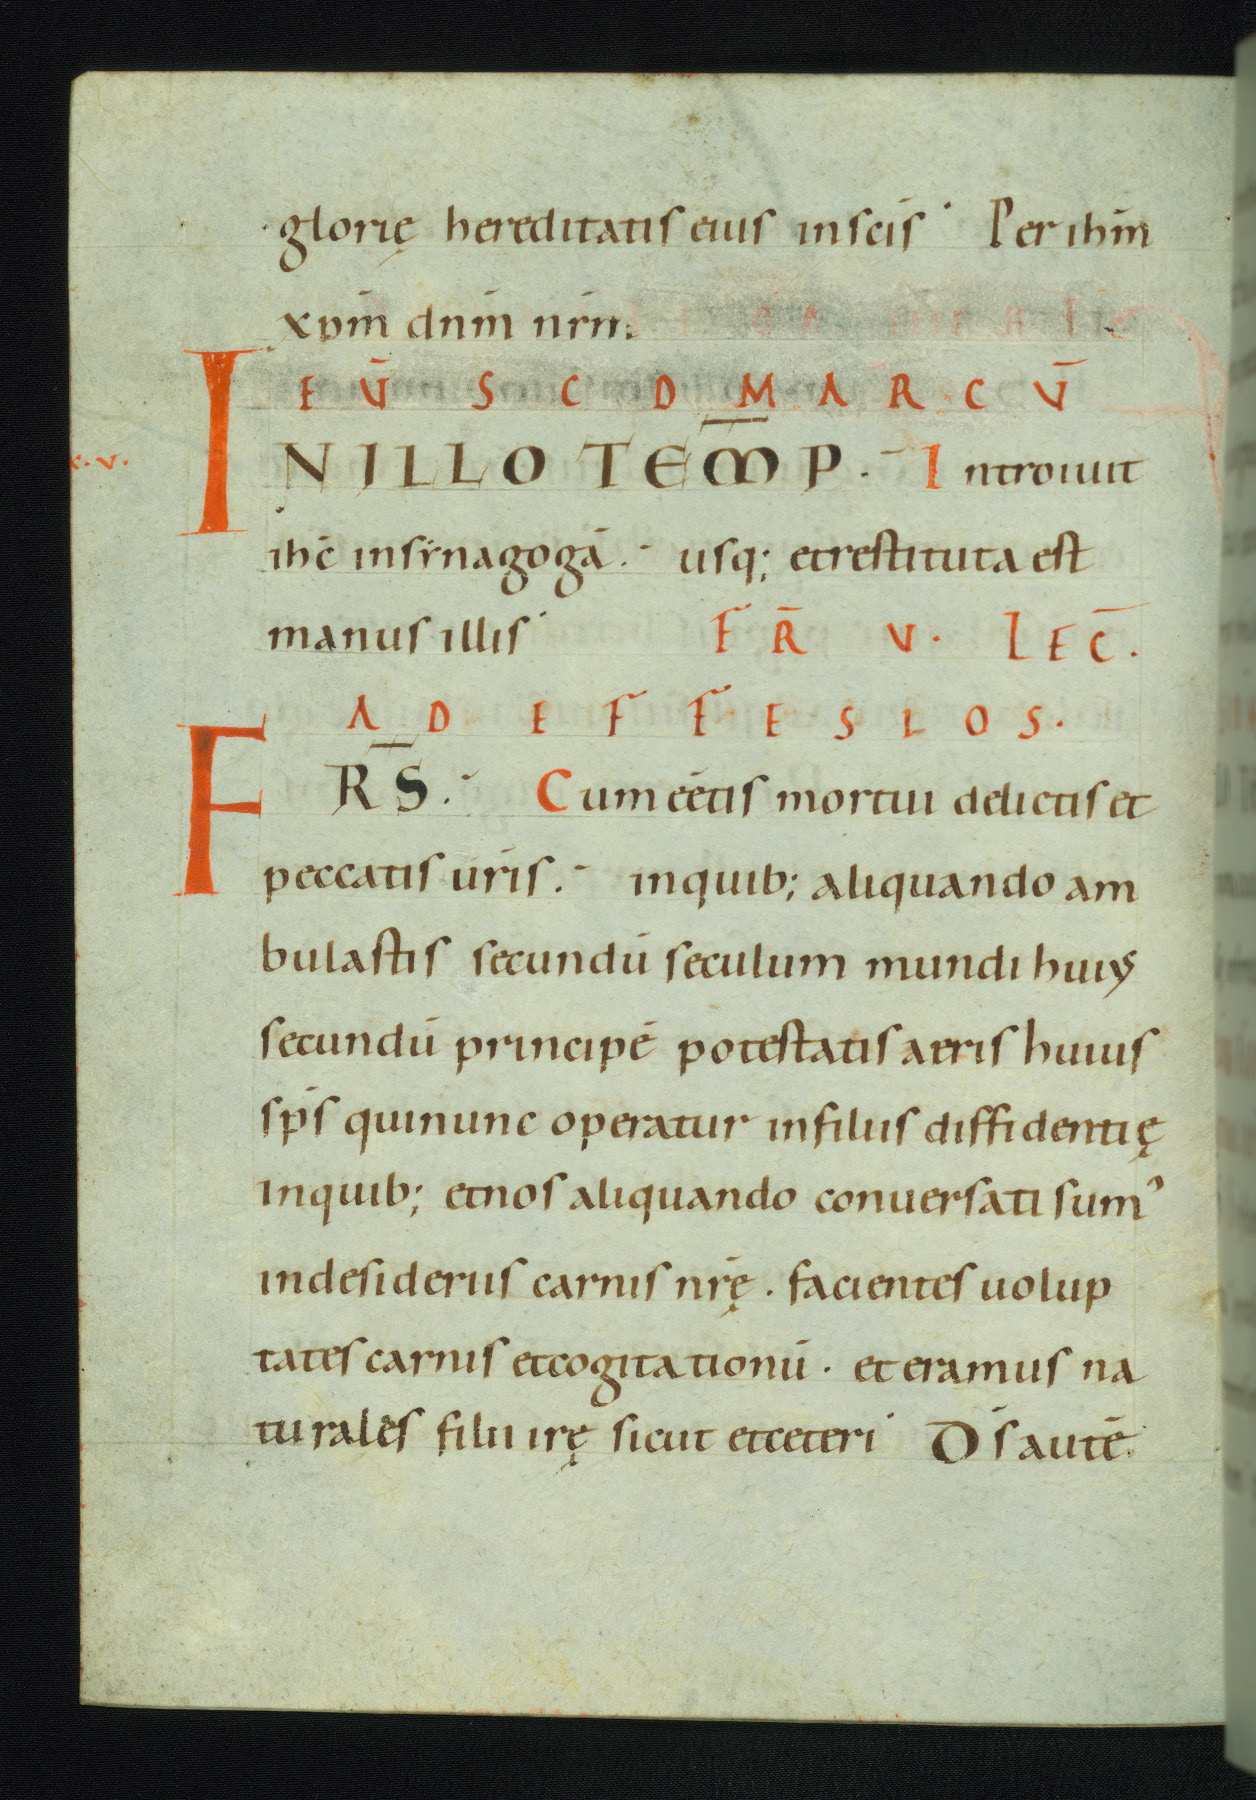 glorię hereditatis eius in scīs· Per ihm̄
xpm̄ dnm̄ nrm̄:
EV̄ SCD MARCV̄
c. v.
IN ILLO TEM̄P. Introiuit
ihc̄ in synagogā. usq; et restituta est
manus illis· FR̄ V. LEC̄.
AD EFFESIOS.
FRS̄. Cum eētis mortui delictis et
peccatis ur̄is. in quib; aliquando am
bulastis secundū seculum mundi huiꝰ
secundū principē potestatis aeris huius
sp̄s qui nunc operatur in filiis diffidentię
In quib; et nos aliquando conuersati sumꝰ
in desideriis carnis nr̄ę. facientes uolup
tates carnis et cogitationū. et eramus na
turales filii irę sicut et ceteri· Ds̄ autē